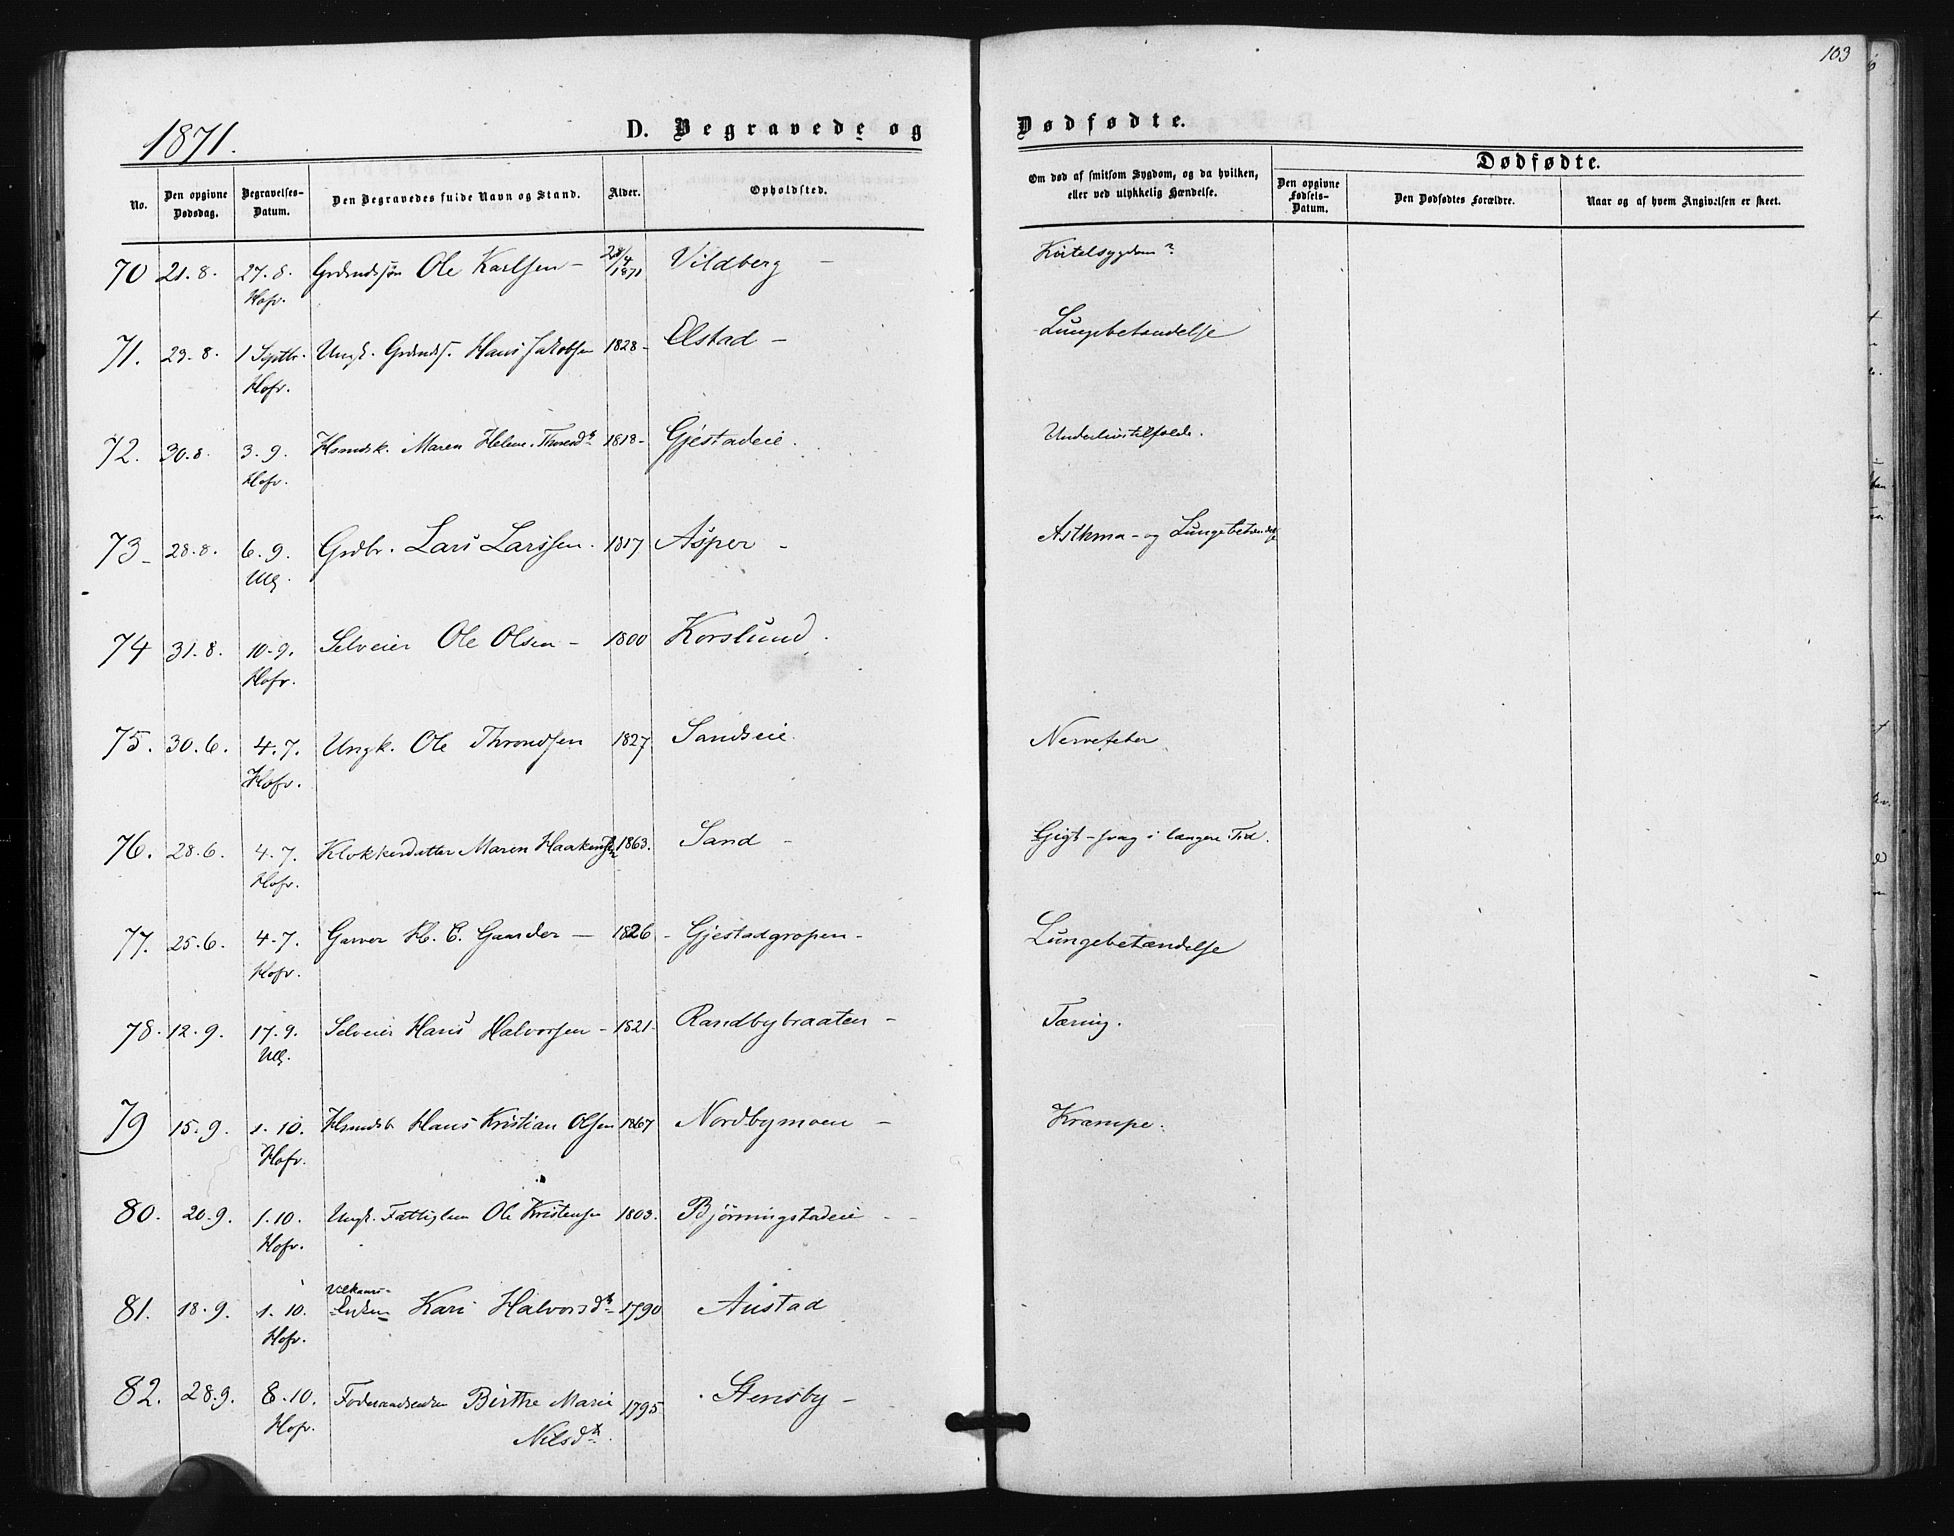 103
1871.
D. Begravede og Dødfødte.
Dødfødte.
No. Den opgivne Dødsdag. Begravelses-Datum. Den Begravedes fulde Navn og Stand. Alder. Opholdsted. Om død af smitsom Sygdom, og da hvilken, eller ved ulykkelig Hændelse. Den opgivne Fødsels-Datum. Den Dødfødtes Forældre. Naar og af hvem Angivelsen er skeet.
70 21.8. 27.8. Grdmdssøn Ole Karlsen - 28/4 1871 Vildberg - Kirtelsygdom?
Hofv.
71. 29.8. 1 Septbr. Ungk. Grdmds. Hans Jakobsen 1828- Olstad - Lungebetændelse
Hofv.
72. 30.8. 3.9. Hsmdsk. Maren Helene Thoresdtr 1818- Gjestadeie. Underlivstilfælde.
Hofv.
73- 28.8. 6.9. Grdbr. Lars Larssen. 1817 Asper - Asthma- og Lungebetændelse
Ull.
74 31.8. 10.9. Selveier Ole Olsen - 1800 Korslund.
Hofv.
75. 30.6. 4.7. Ungk. Ole Throndsen 1827 Sandseie. Nervefeber
Hofv.
76. 28.6. 4.7. Klokkerdatter Maren Haakensen 1863. Sand - Gigt- svag i længere Tid.
Hofv.
77. 25.6. 4.7. Garver H. C. Gaarder - 1826 - Gjestadgropen - Lungebetændelse
Hofv.
78. 12.9. 17.9. Selveier Hans Halvorsen - 1821- Randbybraaten - Tæring.
Ull.
79 15.9. 1.10. Hsmdsb Hans Kristian Olsen 1867 Nordbymoen - Krampe.
Hofv.
80. 20.9. 1.10. Ungk. Fattiglem Ole Kristensen 1803. Bjørningstadeie -
Hofv.
81. 18.9. 1.10. Vilkaars-Enken Kari Halvorsdtr 1790 Austad
Hofv.
82. 28.9. 8.10. Føderaadsenken Birthe Marie 1795 Stensby -
Hofv. Nilsdtr.